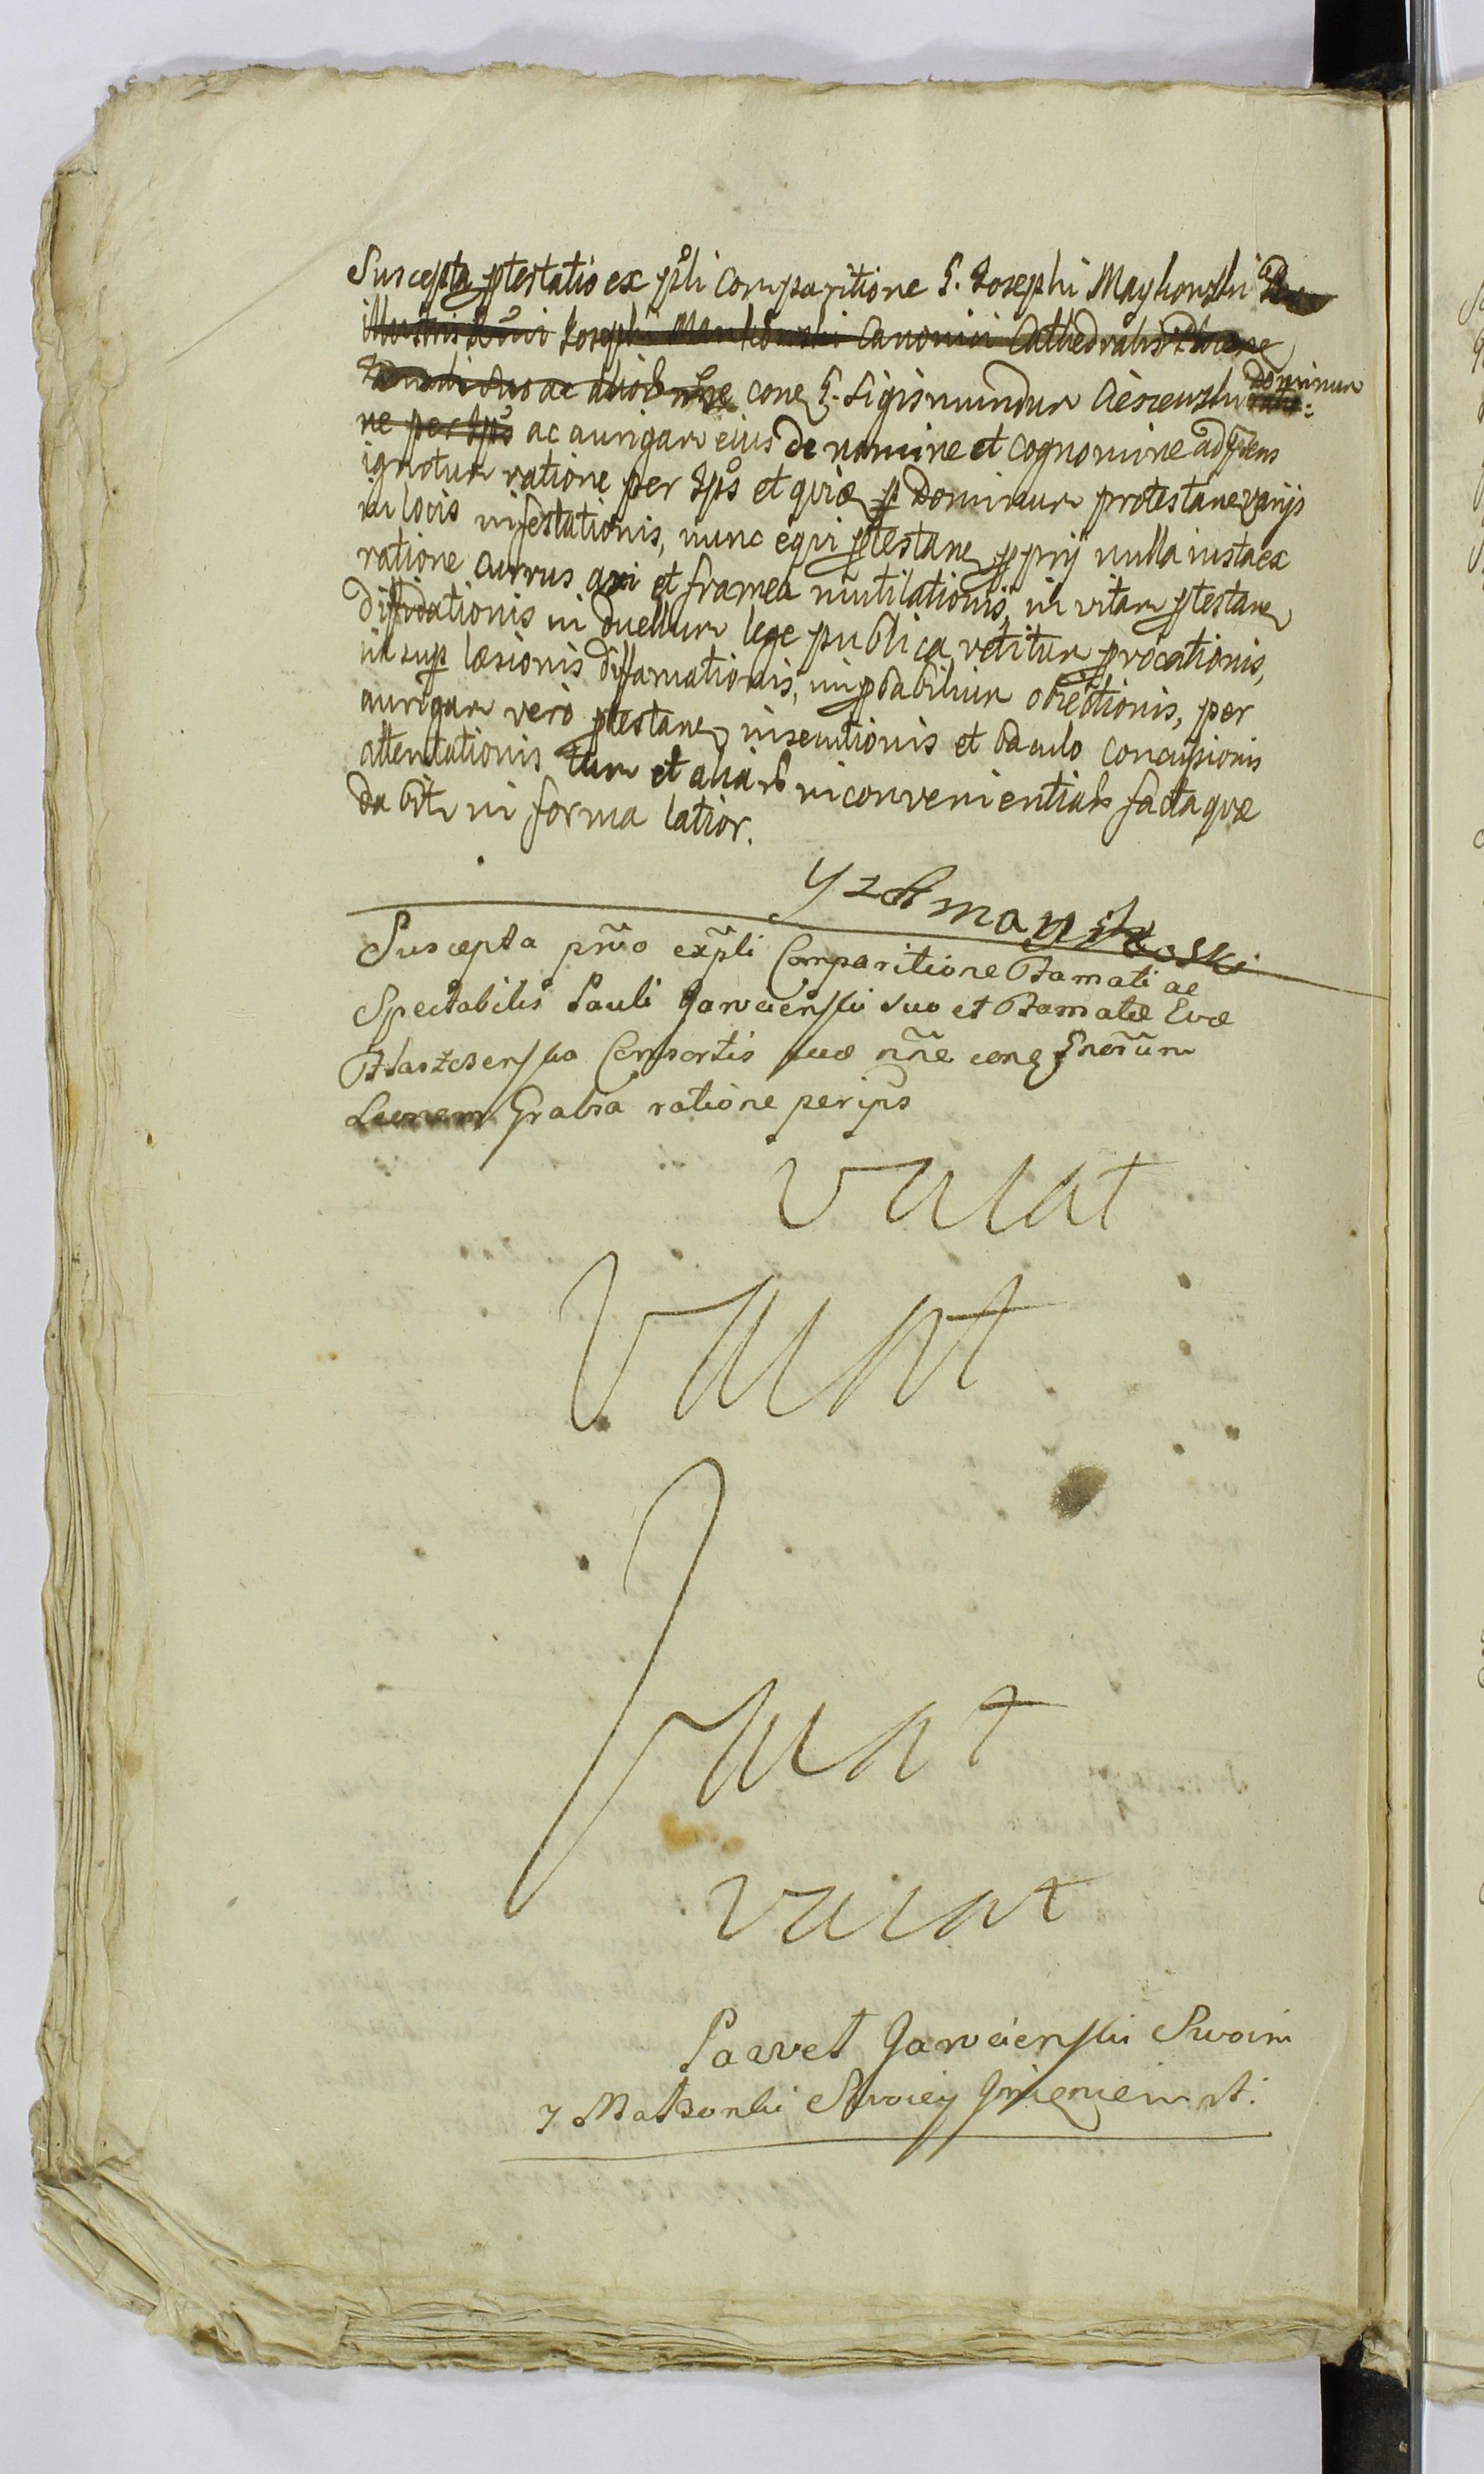 Suscepta ptestatio ex pśli comparitione G. Josephi Maykowski
Josephi Mankowski Canonici Cathedralis
suo ac conę G. Sigismundum Cieszewski dominum
ne per Ips ac aurigam eius de nomine et cognomine adpñens
ignotum ratione per Ips et quidē p Dominum protestanę varijs
in locis infestationis, nunc equi ptestanę pprij nulla iusta ex
ratione currus axi et framea mutilationis, in vitam ptestanę
diffidationis in duellum lege publica vetitum provocationis,
insup læsionis diffamationis, impbabilium obiectionis, per
aurigam vero ptestanę insecutionis et baculo concussionis
attentationis tum et aliarum inconvenientiarum facta quæ
dabitr in forma latior.
Suscepta pñio ex pñli Comparitione Famati ac
Spectabilis Pauli Jarocienski suo et Famatæ Evæ
Consortis suæ nñe conę Gnosum
Grabia ratione per ips
Vacat
Vacat
Vacat
Vacat
Paweł Jarocienski Swoim
y Małzonki Swoiey Imieniem